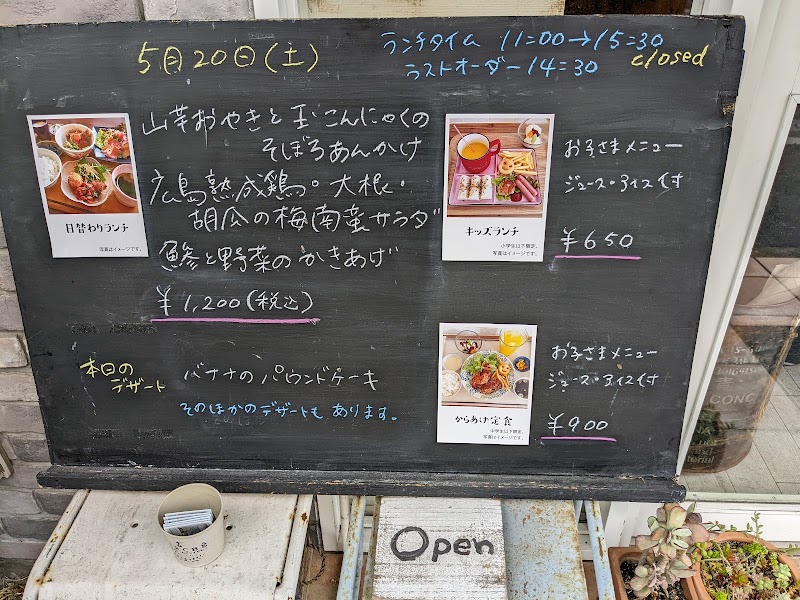 5月20日(土)
ランチタイム 11=00→15=30
ラストオーダー14=30
closed
山芋おやきと玉こんにゃくの
そぼろあんかけ
広島熟成鶏。大根・
胡瓜の梅南蛮サラダ
鯵と野菜のかきあげ
¥1,200(税込)
日替わりランチ
写真はイメージです。
キッズランチ
小学生以下限定。
写真はイメージです。
お子さまメニュー
ジュース・アイス付
¥650
本日の
デザート
バナナのパウンドケーキ
そのほかのデザートもあります。
からあげ定食
小学生以下限定。
写真はイメージです。
お子さまメニュー
ジュース・アイス付
¥900
Open